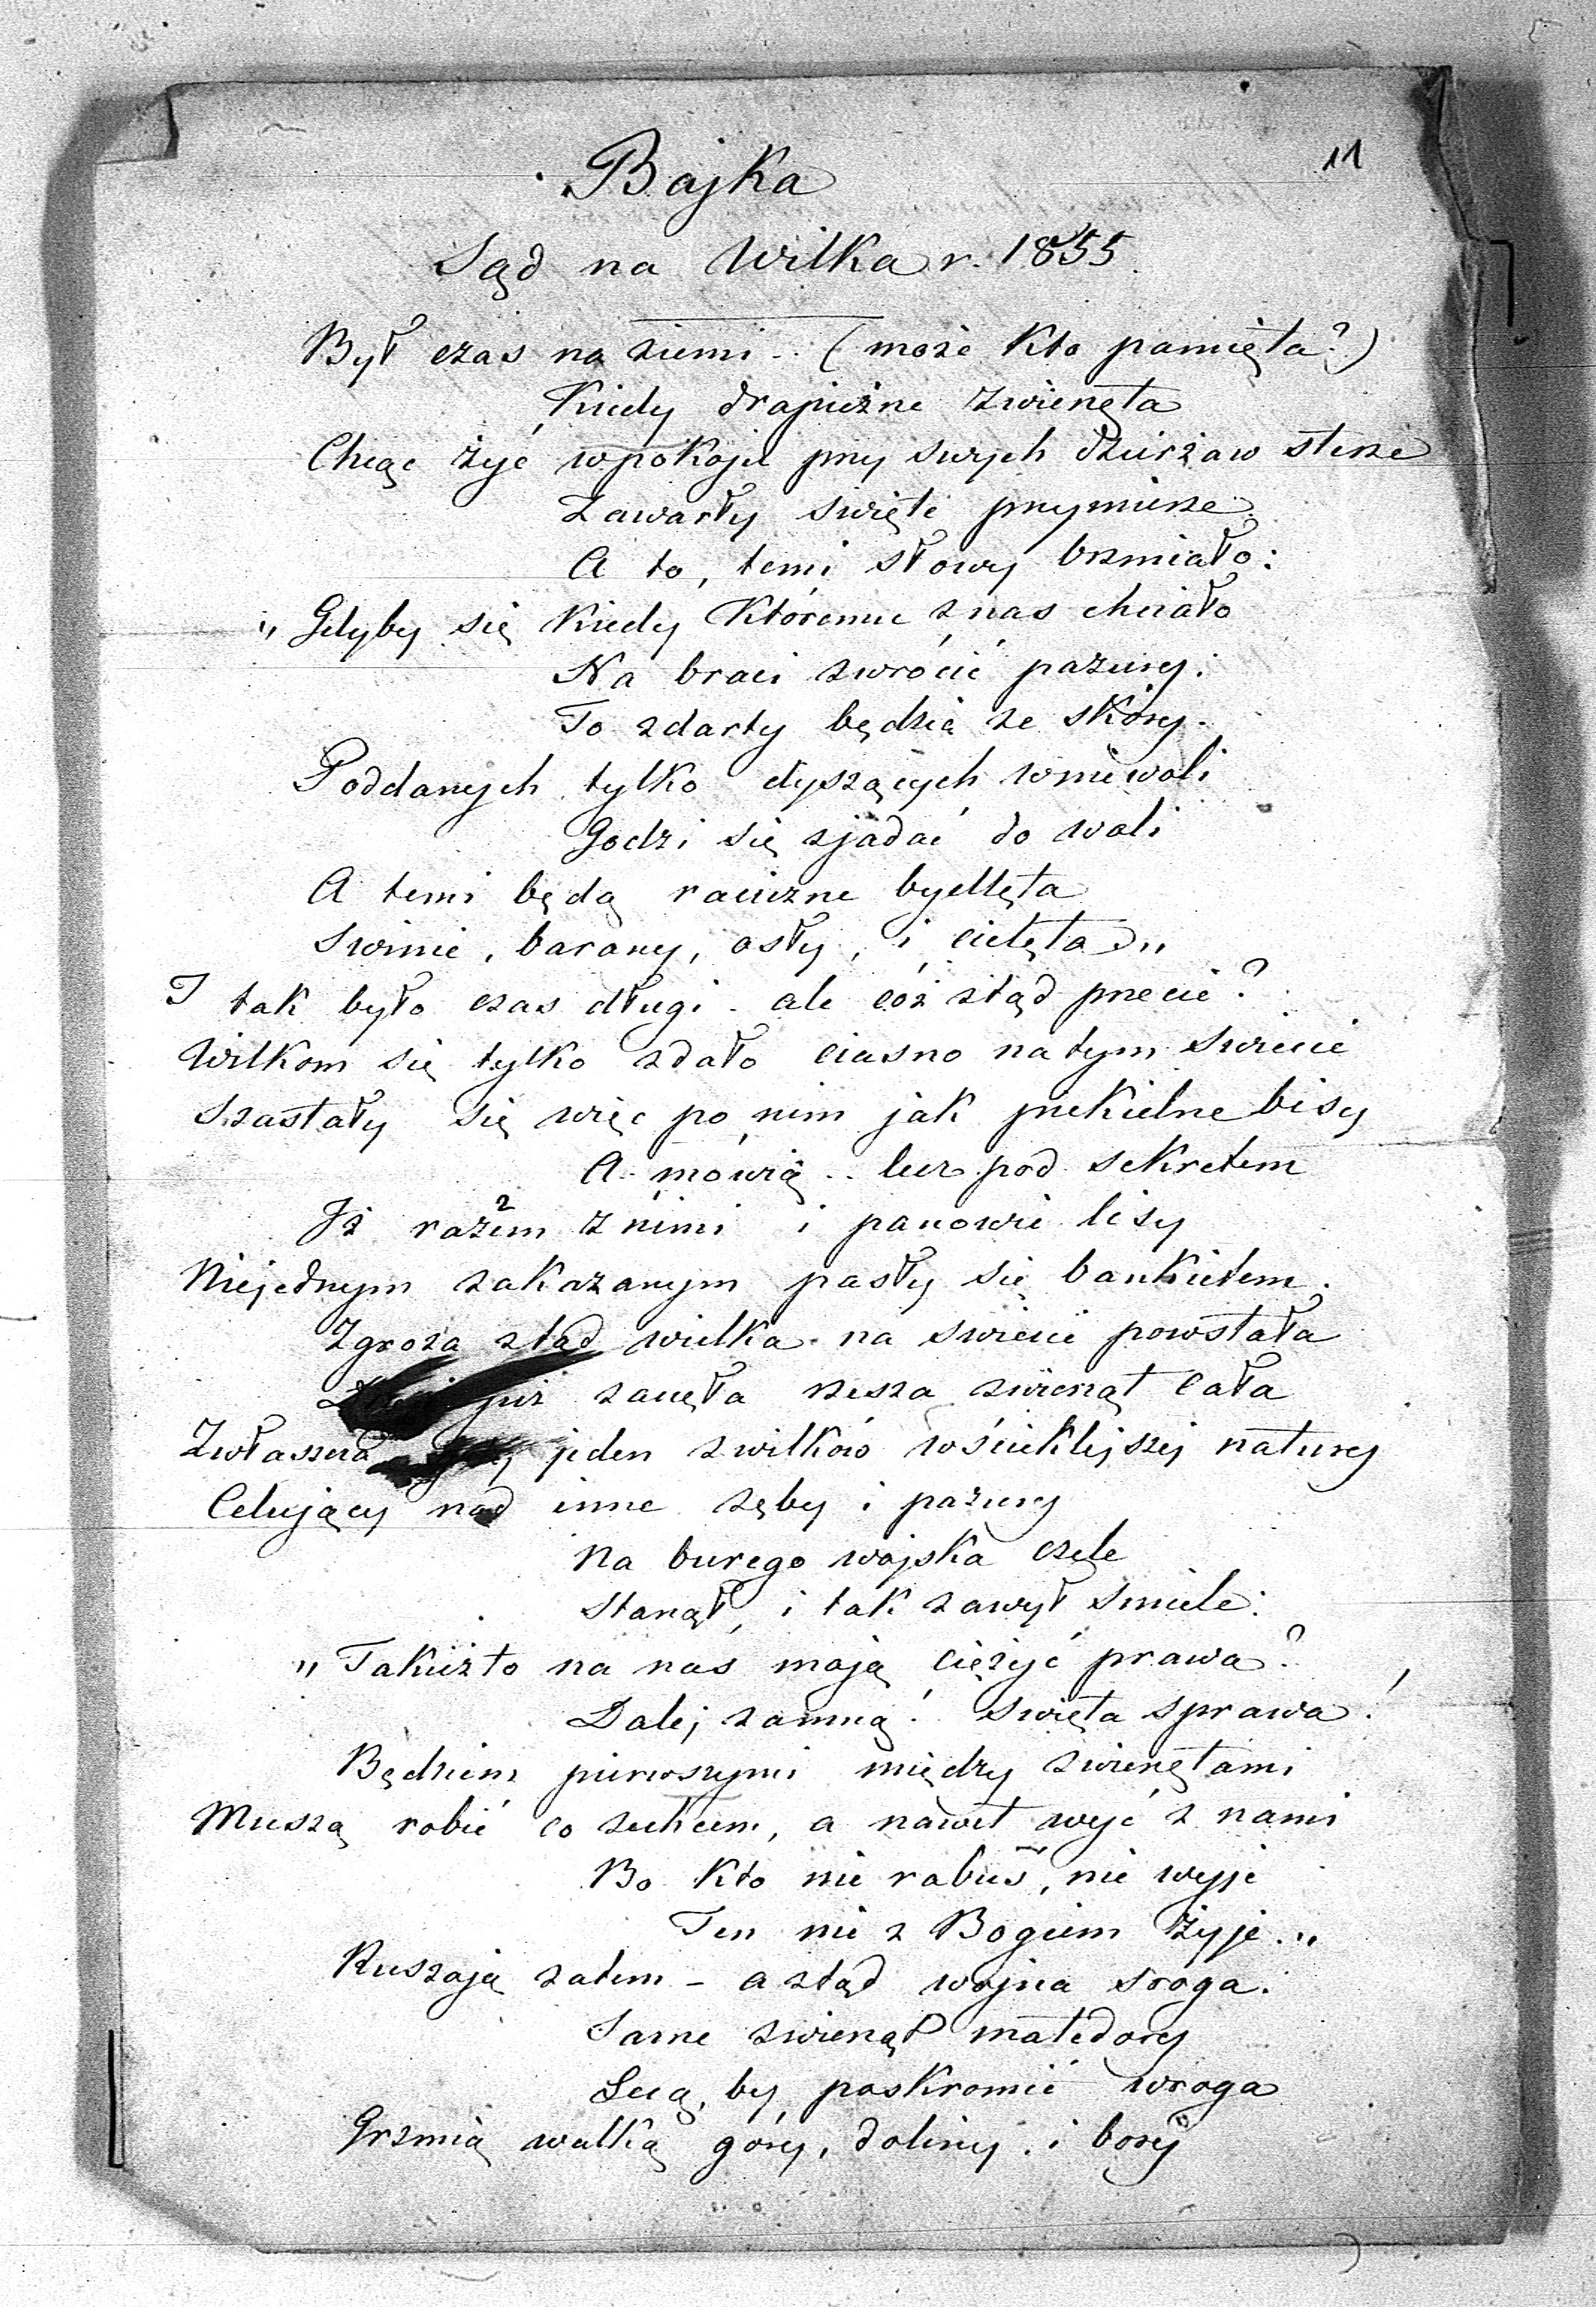 11
Bajka
Sąd na Wilka r. 1855.
Był czas na ziemi.. (może kto pamięta?)
Kiedy drapieżne zwierzęta
Chcąc żyć w pokoju przy swych dzierżaw sterze
Zawarły święte przymierze.
A to, temi słowy brzmiało:
„Gdyby się kiedy któremu z nas chciało
Na braci zwrócić pazury:
To zdarty będzie ze skóry.
Poddanych tylko dyszących w niewoli
Godzi się zjadać do woli
A temi będą raciczne bydlęta
Swinie, barany, osły, i cielęta„
I tak było czas długi. ale cóż ztąd przecie?
Wilkom się tylko zdało ciasno na tym swiecie
Szastały się więc po nim jak piekielne bisy
A mówią.. lecz pod sekretem
Iż razem z niemi i panowie lisy
Niejednym zakazanym pasły się bankietem.
Zgroza ztąd wielka na swiecie powstała
już zaczęła rzesza zwierząt cała
Zwłaszcza jeden z wilków wścieklejszej natury
Celujący nad inne zęby i pazury
Na burego wojska czele
Stanął, i tak zawył smiele:
„Takież to na nas mają ciężyć prawa?
Dalej zamną! swięta sprawa!
Będziem pierwszymi między zwierzętami
Muszą robić co zechcem, a nawet wyć z nami
Bo kto nie rabuś, nie wyje
Ten nie z Bogiem żyje.„
Ruszają zatem – a ztąd wojna sroga.
Same zwierząt matedory
Lecą, by poskromić wroga
Grzmią walką góry, doliny, i bory